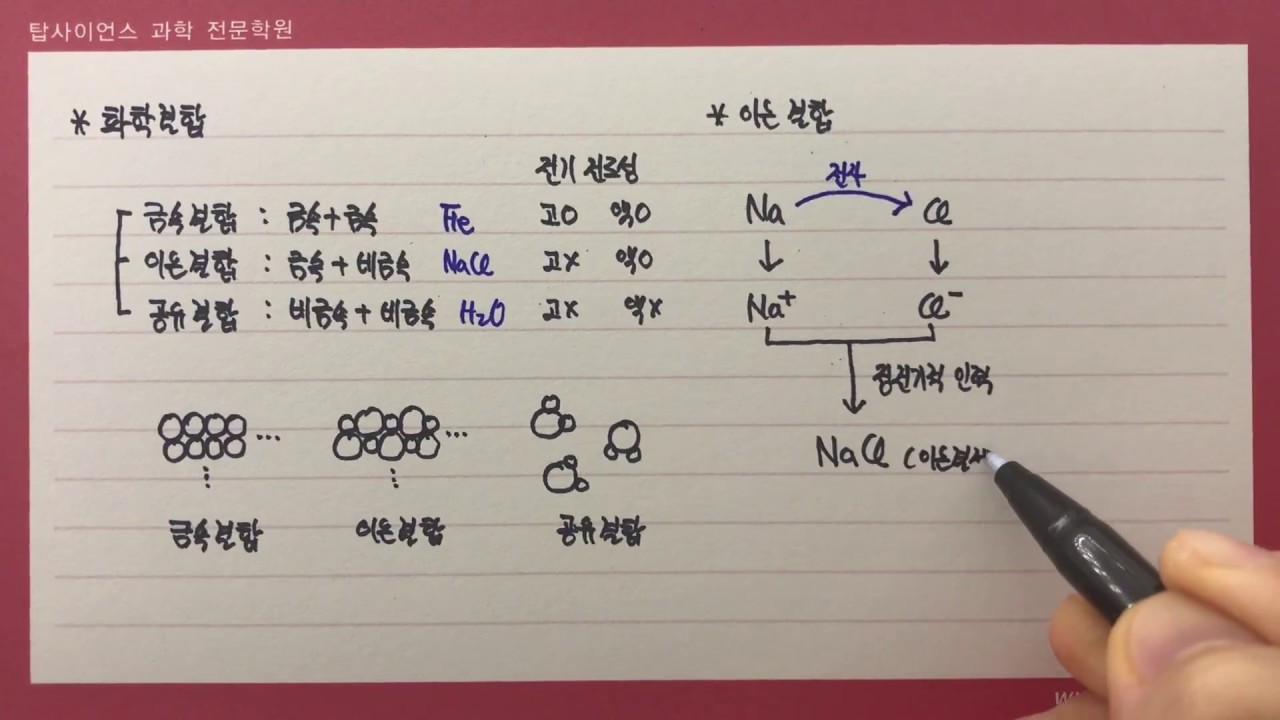 탑사이언스 과학 전문학원
* 화학결합
전기 전도성
금속결합 : 금속+금속 Fe 고O 액O
이온결합 : 금속+비금속 NaCl 고X 액O
공유결합 : 비금속+비금속 H2O 고X 액X
... ... 
금속결합 이온결합 공유결합
* 이온결합
전자
Na Cl
Na+ Cl-
정전기적 인력
NaCl (이온결